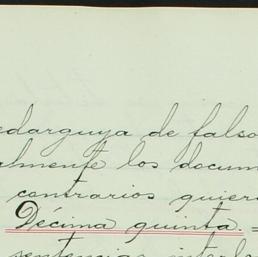 edarguya de falso
almente los docum
contrarios quier
Decima quinta. =
sentencias interl